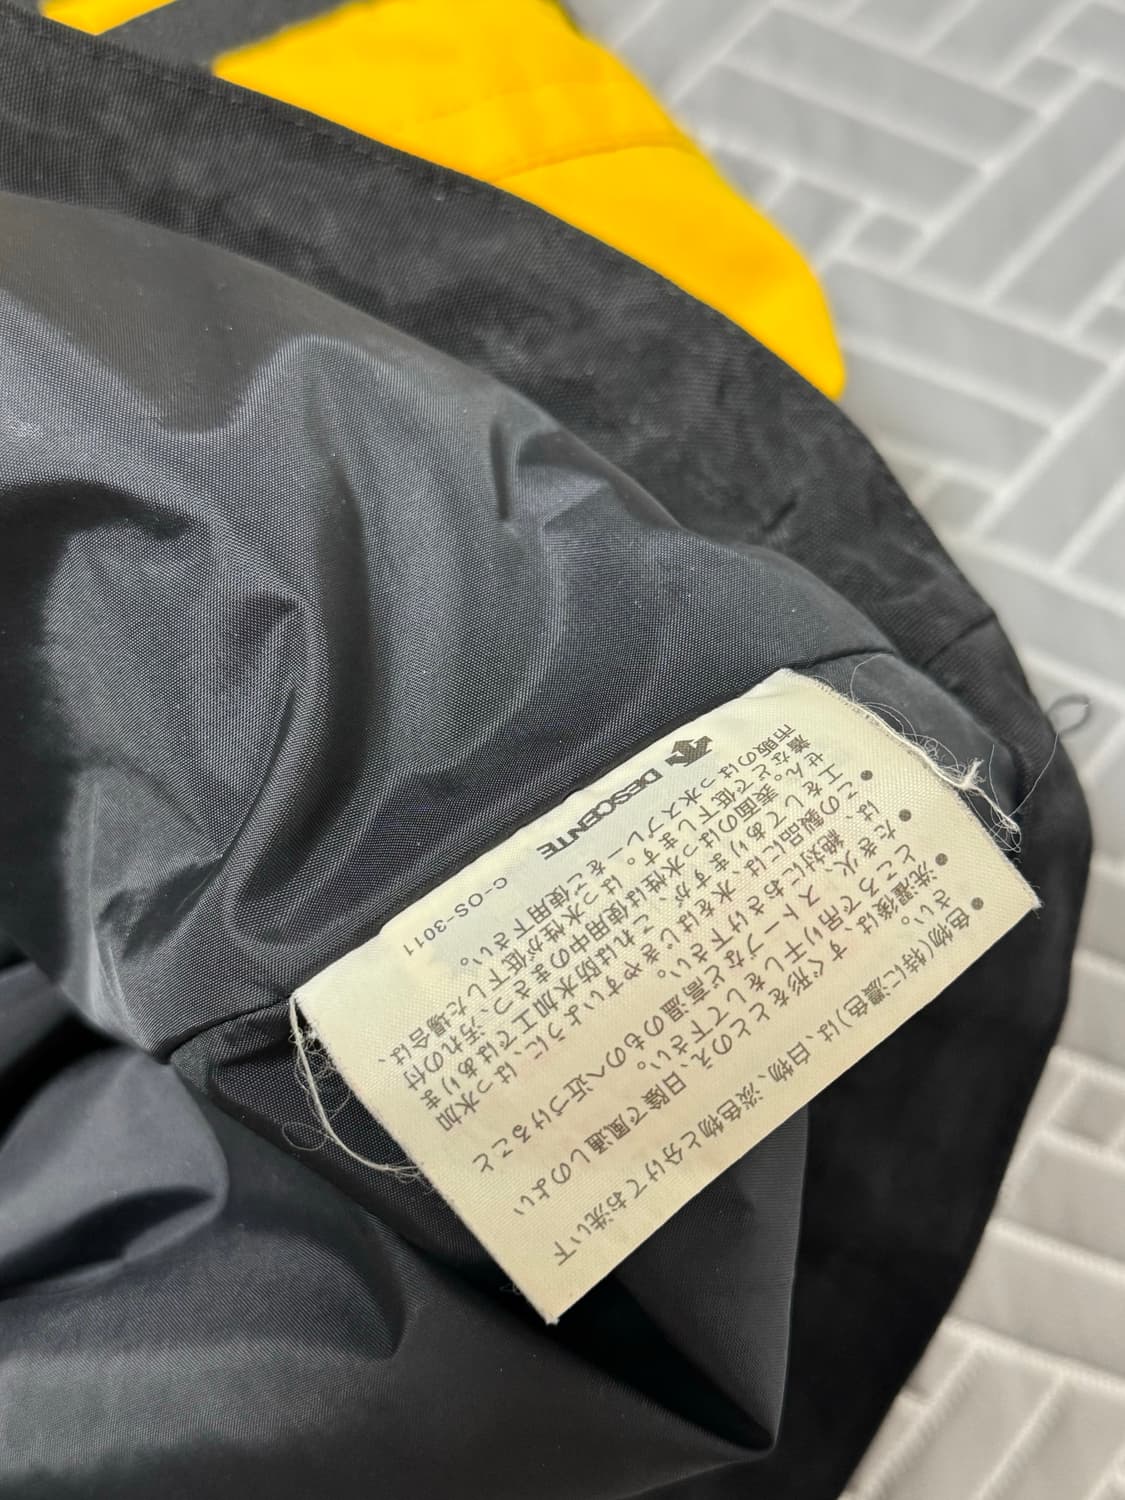 ●色物(特に濃色)は、白物、淡色物と分けてお洗い下
さい。
●洗濯後は、すぐ形をととのえ、日陰で風通しのよい
ところで吊り干しをして下さい。
●たき火、ストーブなど高温のものへ近づけること
は、絶対におさけ下さい。
●この製品には、水をはじきやすいように、はっ水加
工をしてありますが、これは防水加工ではありま
せん。表面のはっ水性は使用中のまさつ、汚れの付
着などで低下します。はっ水性が低下した場合は、
市販のはっ水スプレーをご使用下さい。
DESCENTE
C-OS-3011